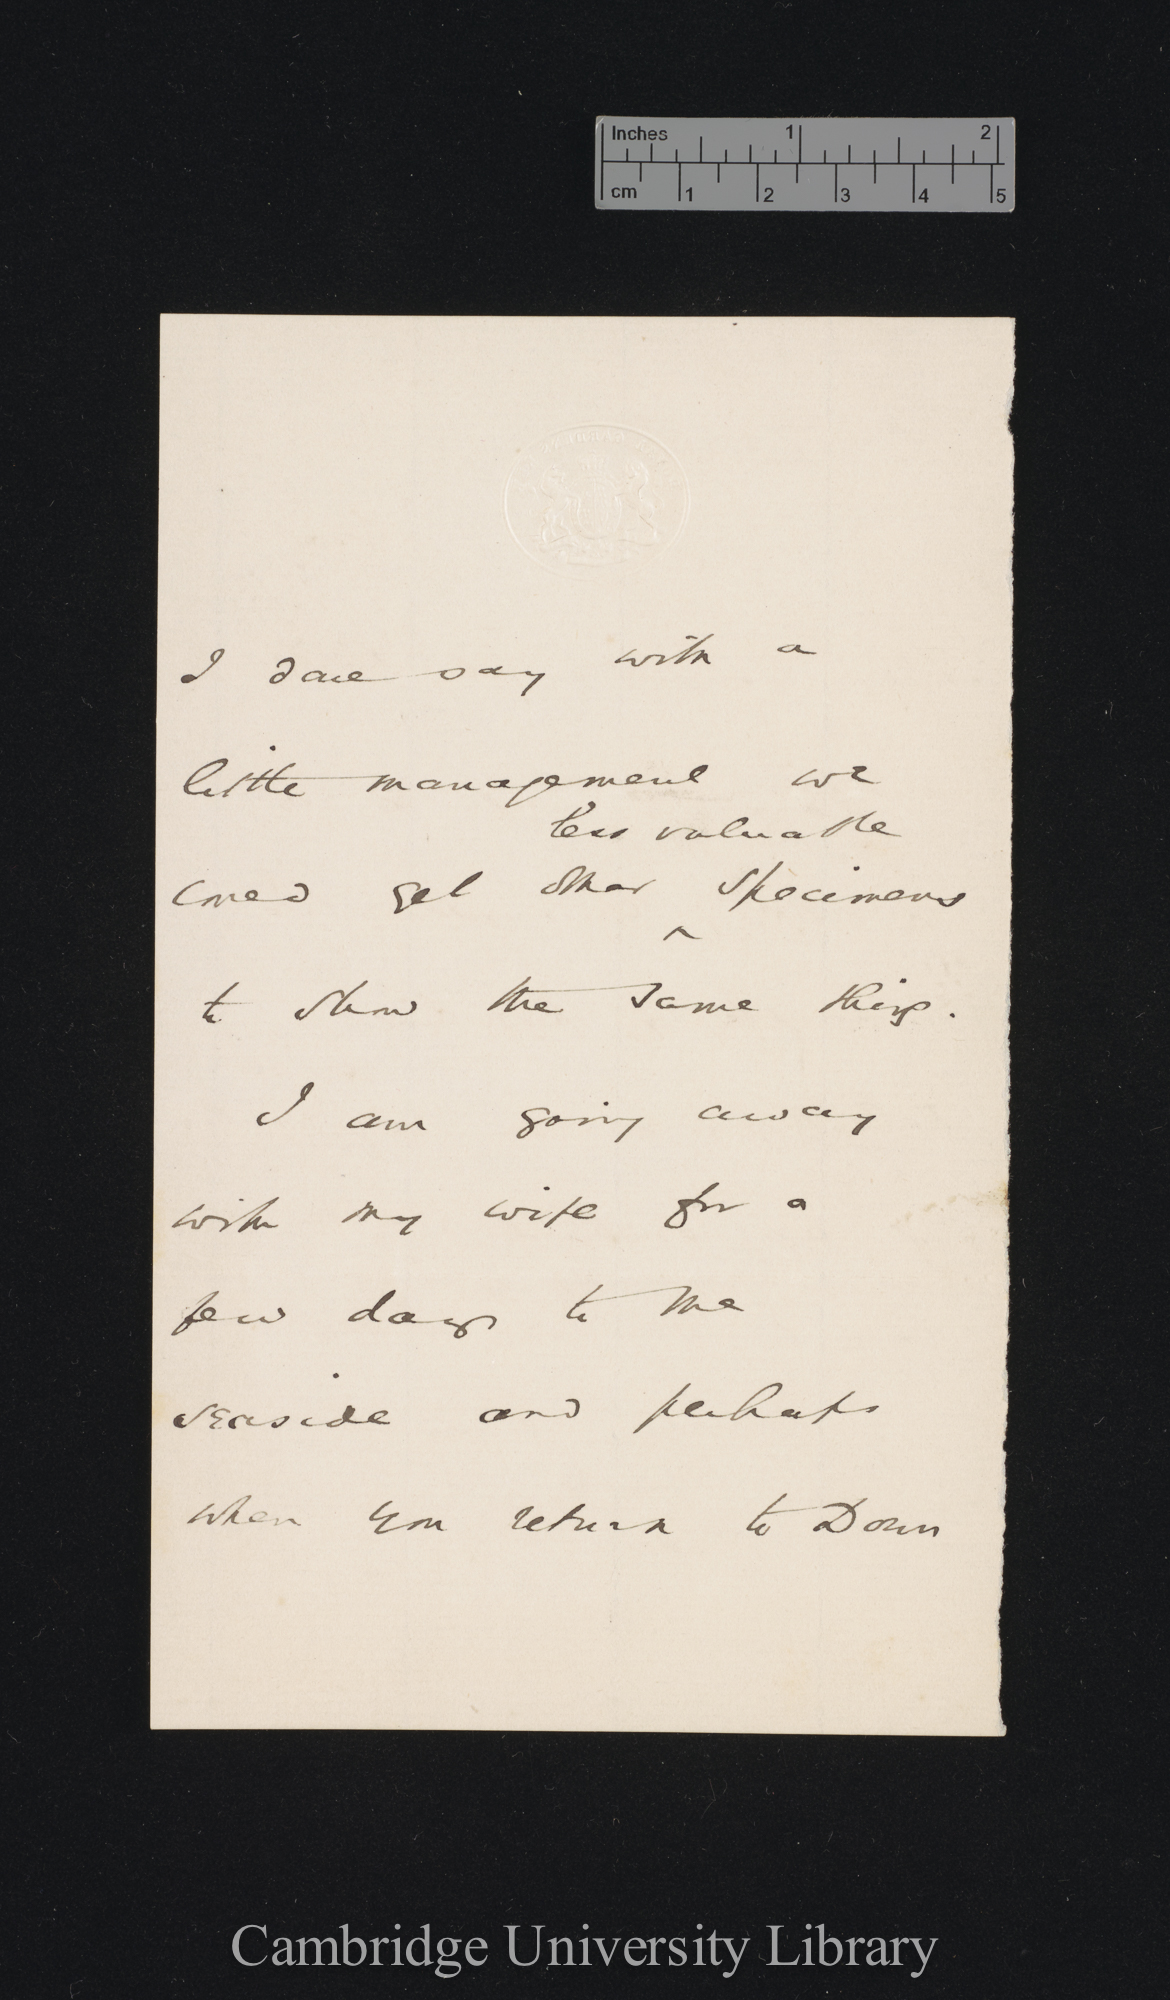 Inches 1 2
cm 1 2 3 4 5
I dare say with a
little management we
less valuable
could get other specimens
^
to show the same thing.
I am going away
with my wife for a
few days to the
seaside and perhaps
when you return to Down
Cambridge University Library